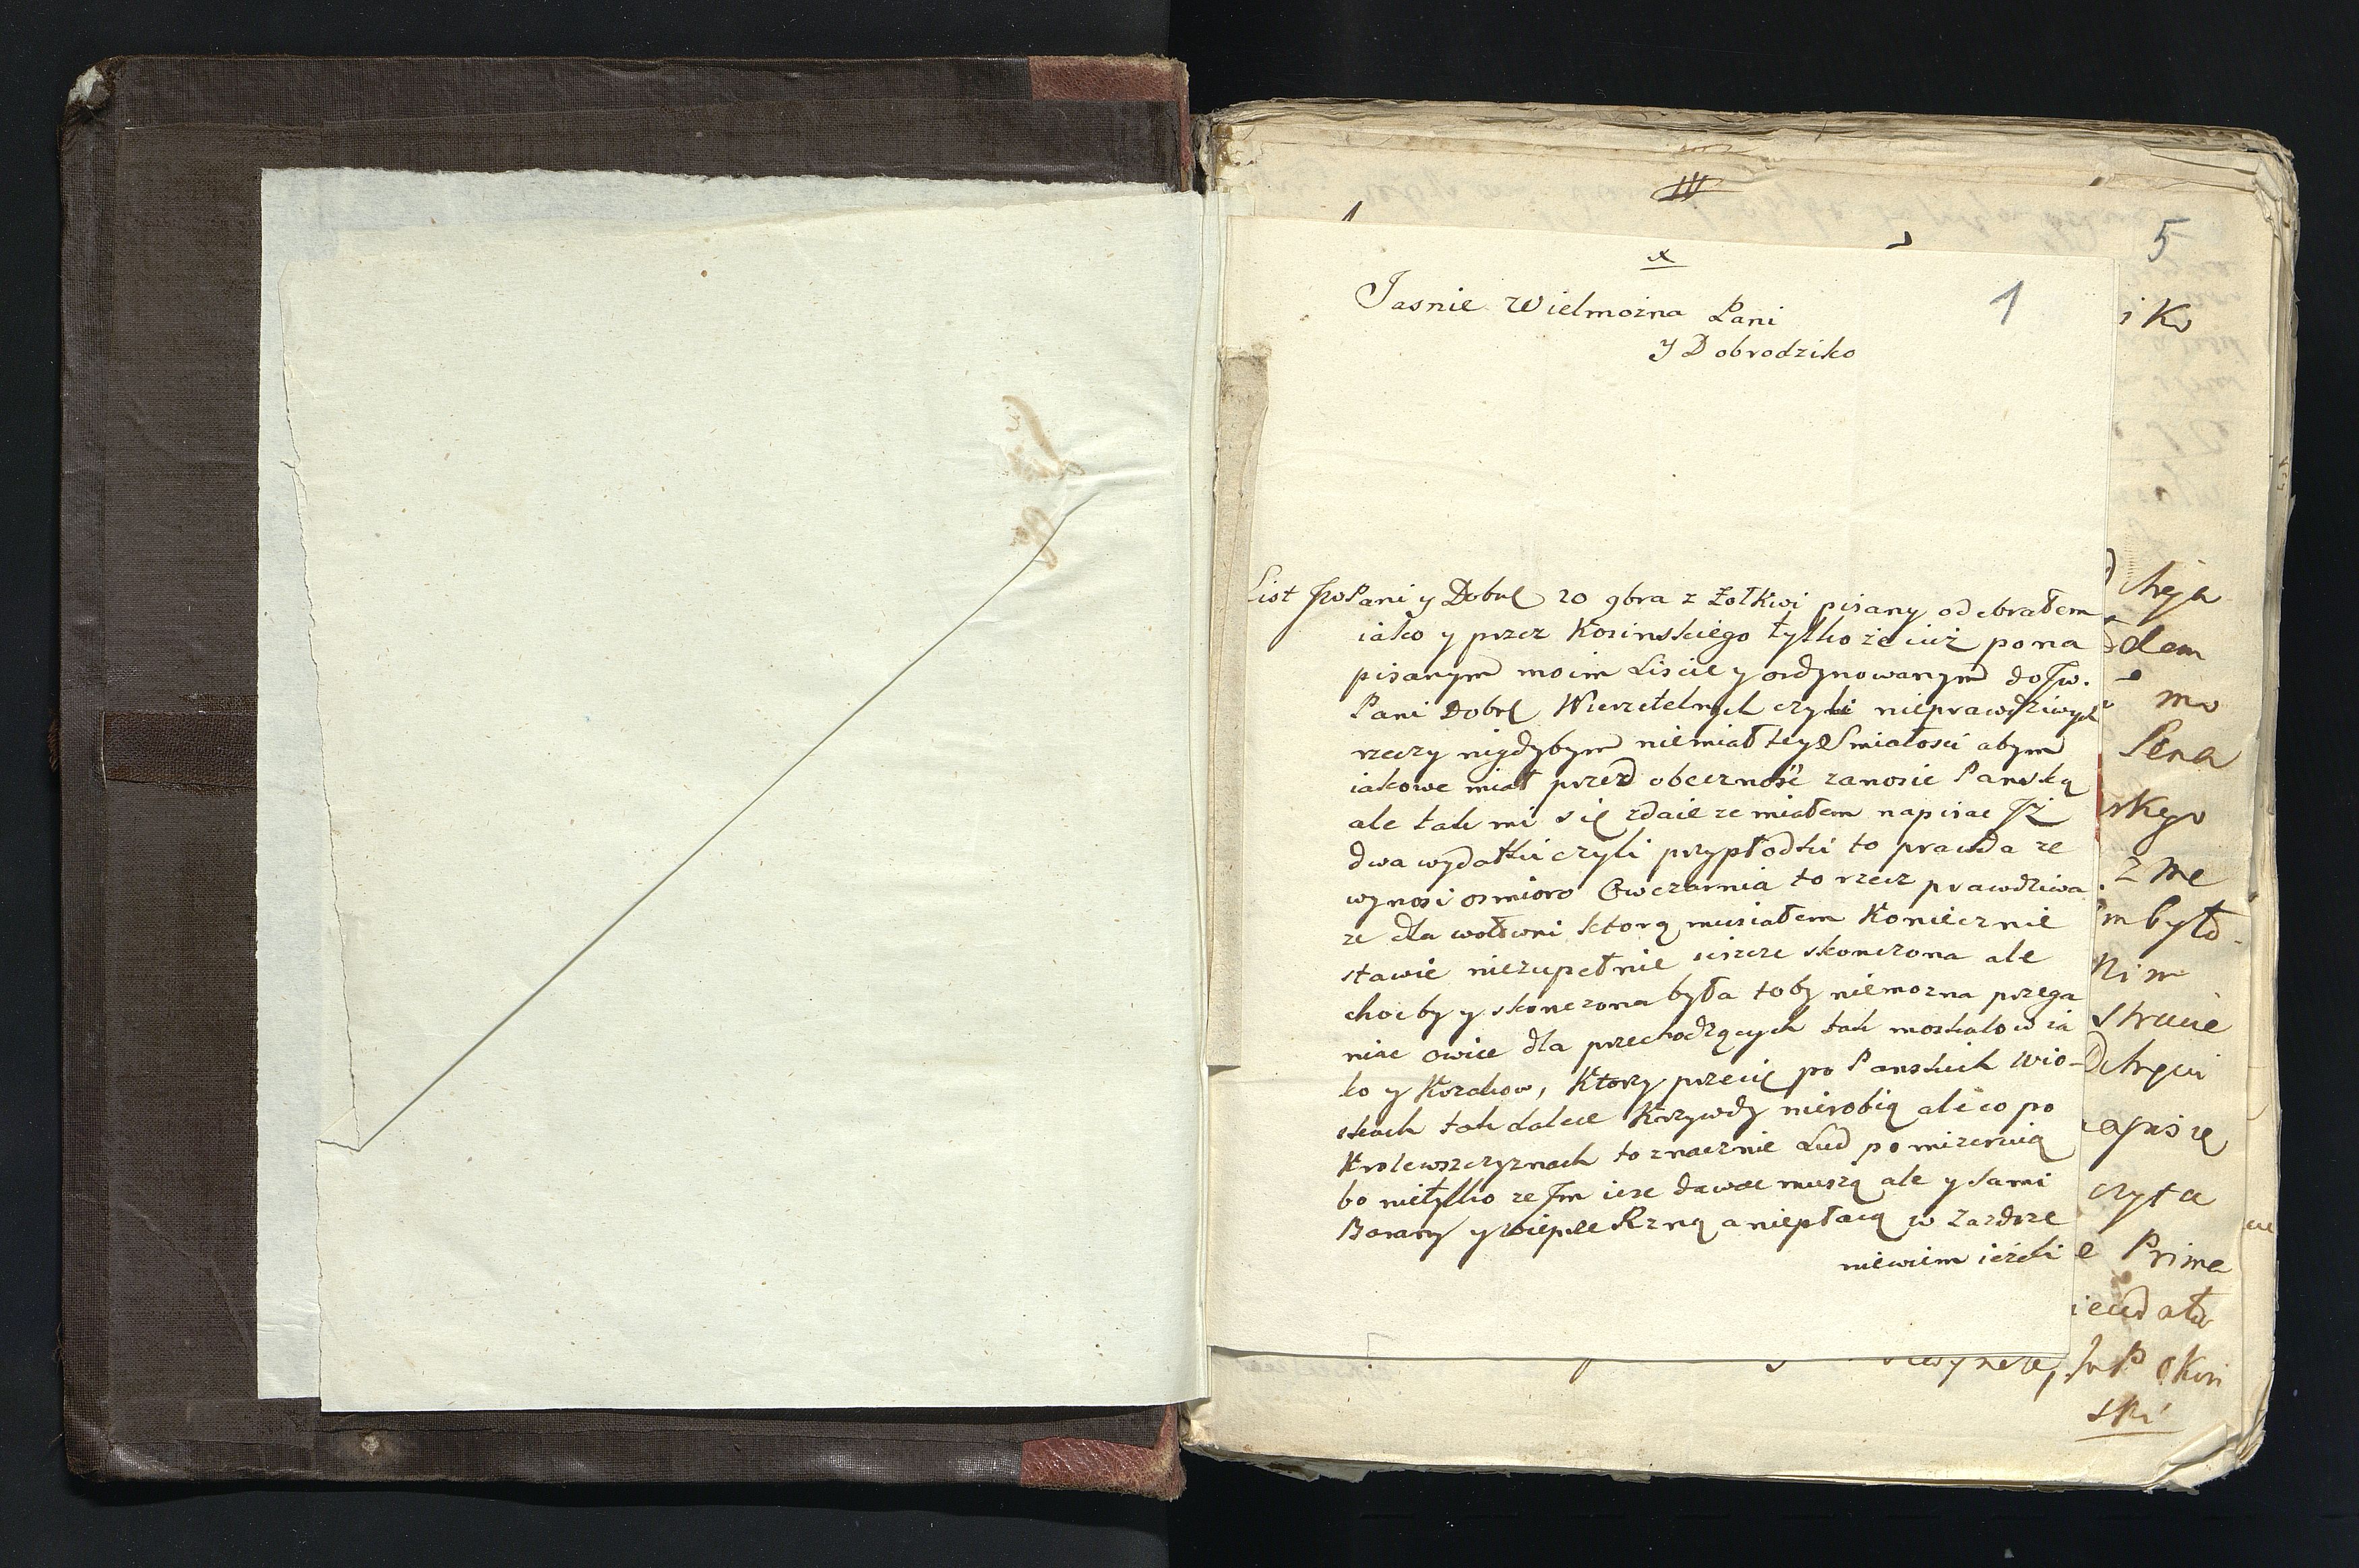 III
5
x
1
Jasnie Wielmożna Pani
y Dobrodziko
List JWPani y Dobrl 20 9bra z Zołkwi pisany odebrałem
iako y przez Kosinskiego tylko że iuż pona
pisanym moim Liscie y ordynowanym do Jw.
Pani Dobrl Wierzetelnych czyli nieprawdziwych
rzeczy nigdybym niemiał tey Smiałosci abym
iakowe miał przed obeczność zanosic Panską
ale tak mi się zdaie ze miałem napisac Jż
dwa wydatki czyli przypłodki to prawda ze
wynosi osmioro Owczarnia to rzecz prawdziwa
ze dla wołowni ktorą musiałem Koniecznie
stawic niezupełnie ieszcze skonczona ale
choc by y skonczona była toby niemozna przega
niac owiec dla przechodzących tak moskalow ia
ko y Kozakow, Ktorzy przecię po Panskich Wio-
skach tak dalece Krzywdy nierobią ale co po
Krolewszczyznach to znacznie Lud pomizernią
bo nietylko ze Jm iesc dawac muszą ale y sami
Barany y wieprze Rzną a niepłacą w Zazdrze
niewiem ieżeli
iko
dem
mo
Sena
skgo
z me
m było
Nim
strucie
apisze
czyta
e Prima
ieudała
JmP oKon
ski